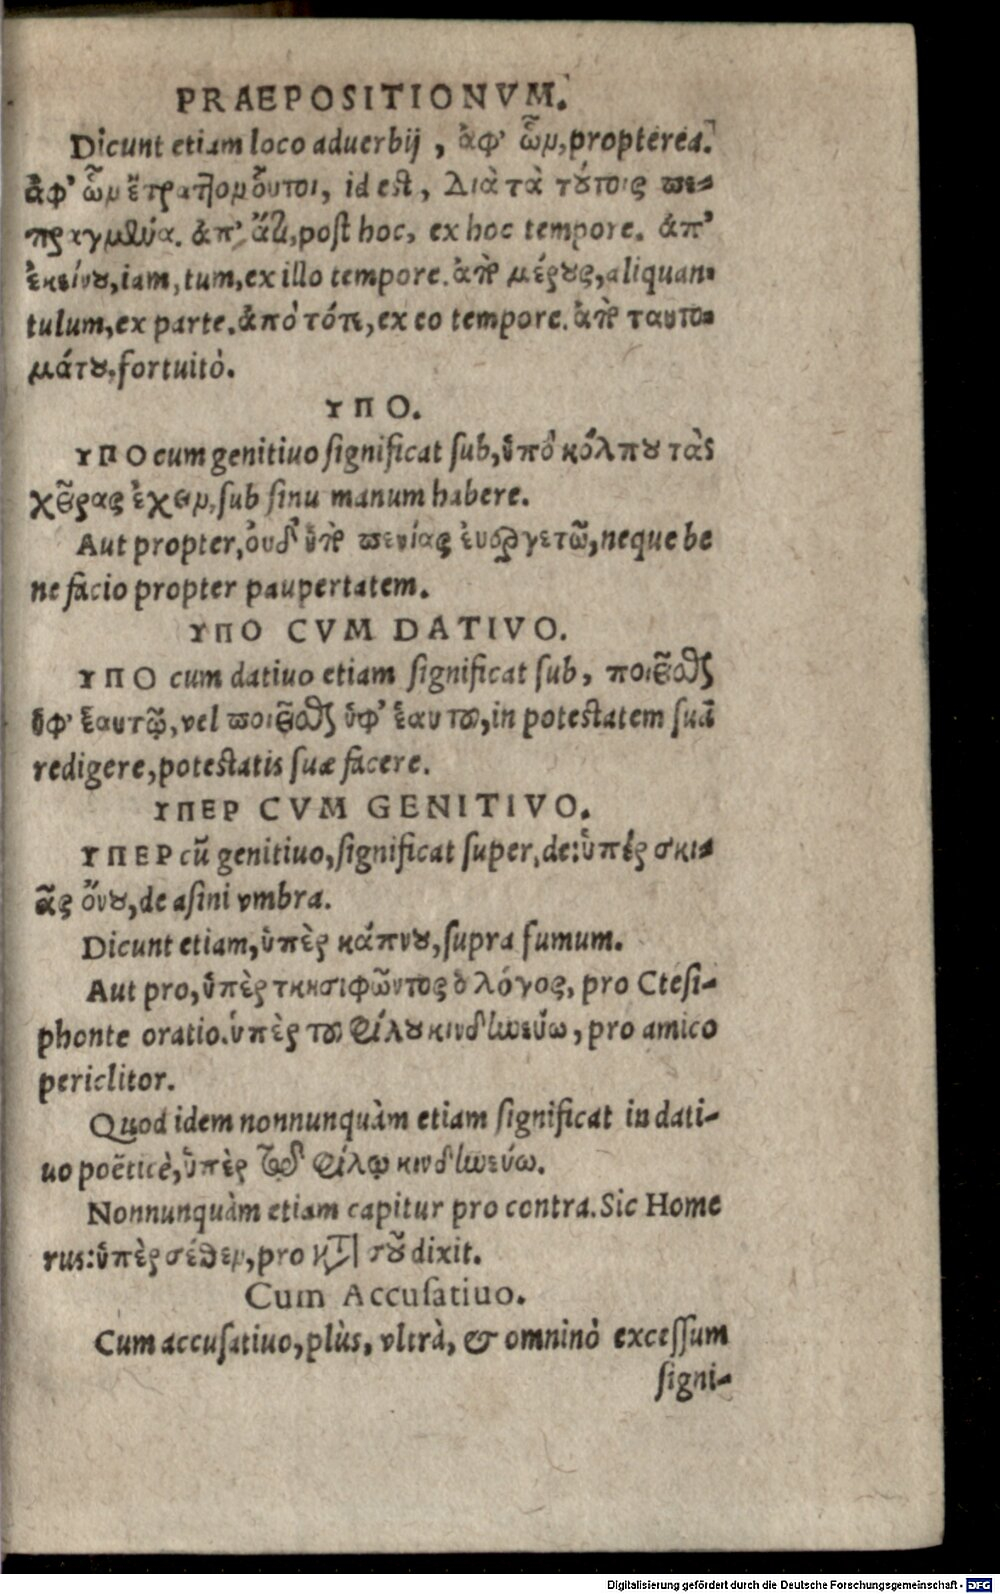 PRAEPOSITIONVM.
Dicunt etiam loco aduerbij, ἀφ' ὧν, propterea.
ἀφ' ὧν ἐτρατηγοῦντοι, id est, Διὰ τὰ τούτοις πε-
πραγμένα. ἀπ' ἄρτι, post hoc, ex hoc tempore. ἀπ'
ἐκείνου, iam, tum, ex illo tempore. ἀπὸ μέρους, aliquan-
tulum, ex parte. ἀπὸ τότε, ex eo tempore. ἀπὸ ταυτο-
μάτου, fortuitò.
ΥΠΟ.
ΥΠΟ cum genitiuo significat sub, ὑπὸ κόλπου τὰς
χεῖρας ἔχειν, sub sinu manum habere.
Aut propter, οὐδ' ὑπὸ πενίας ἐυεργετῶ, neque be
ne facio propter paupertatem.
ΥΠΟ CVM DATIVO.
ΥΠΟ cum dativo etiam significat sub, ποιεῖσθαι
ὑφ' ἑαυτῷ, vel ποιεῖσθαι ὑφ' ἑαυτοῦ, in potestatem suā
redigere, potestatis suæ facere.
ΥΠΕΡ CVM GENITIVO.
ΥΠΕΡ cū genitiuo, significat super, de: ὑπὲρ σκι-
ᾶς ὄνου, de asini vmbra.
Dicunt etiam, ὑπὲρ κάπνου, supra fumum.
Aut pro, ὑπὲρ τκησιφῶντος ὁ λόγος, pro Ctesi-
phonte oratio. ὑπὲρ τοῦ φίλου κινδυνεύω, pro amico
periclitor.
Quod idem nonnunquàm etiam significat in dati-
uo poëticè, ὑπὲρ φίλῳ κινδυνεύω.
Nonnunquàm etiam capitur pro contra. Sic Home
rus: ὑπὲρ σέθεν, pro κατὰ σοῦ dixit.
Cum Accusatiuo.
Cum accusatiuo, plùs, vltrà, & omninò excessum
signi-
Digitalisierung gefördert durch die Deutsche Forschungsgemeinschaft - DFG